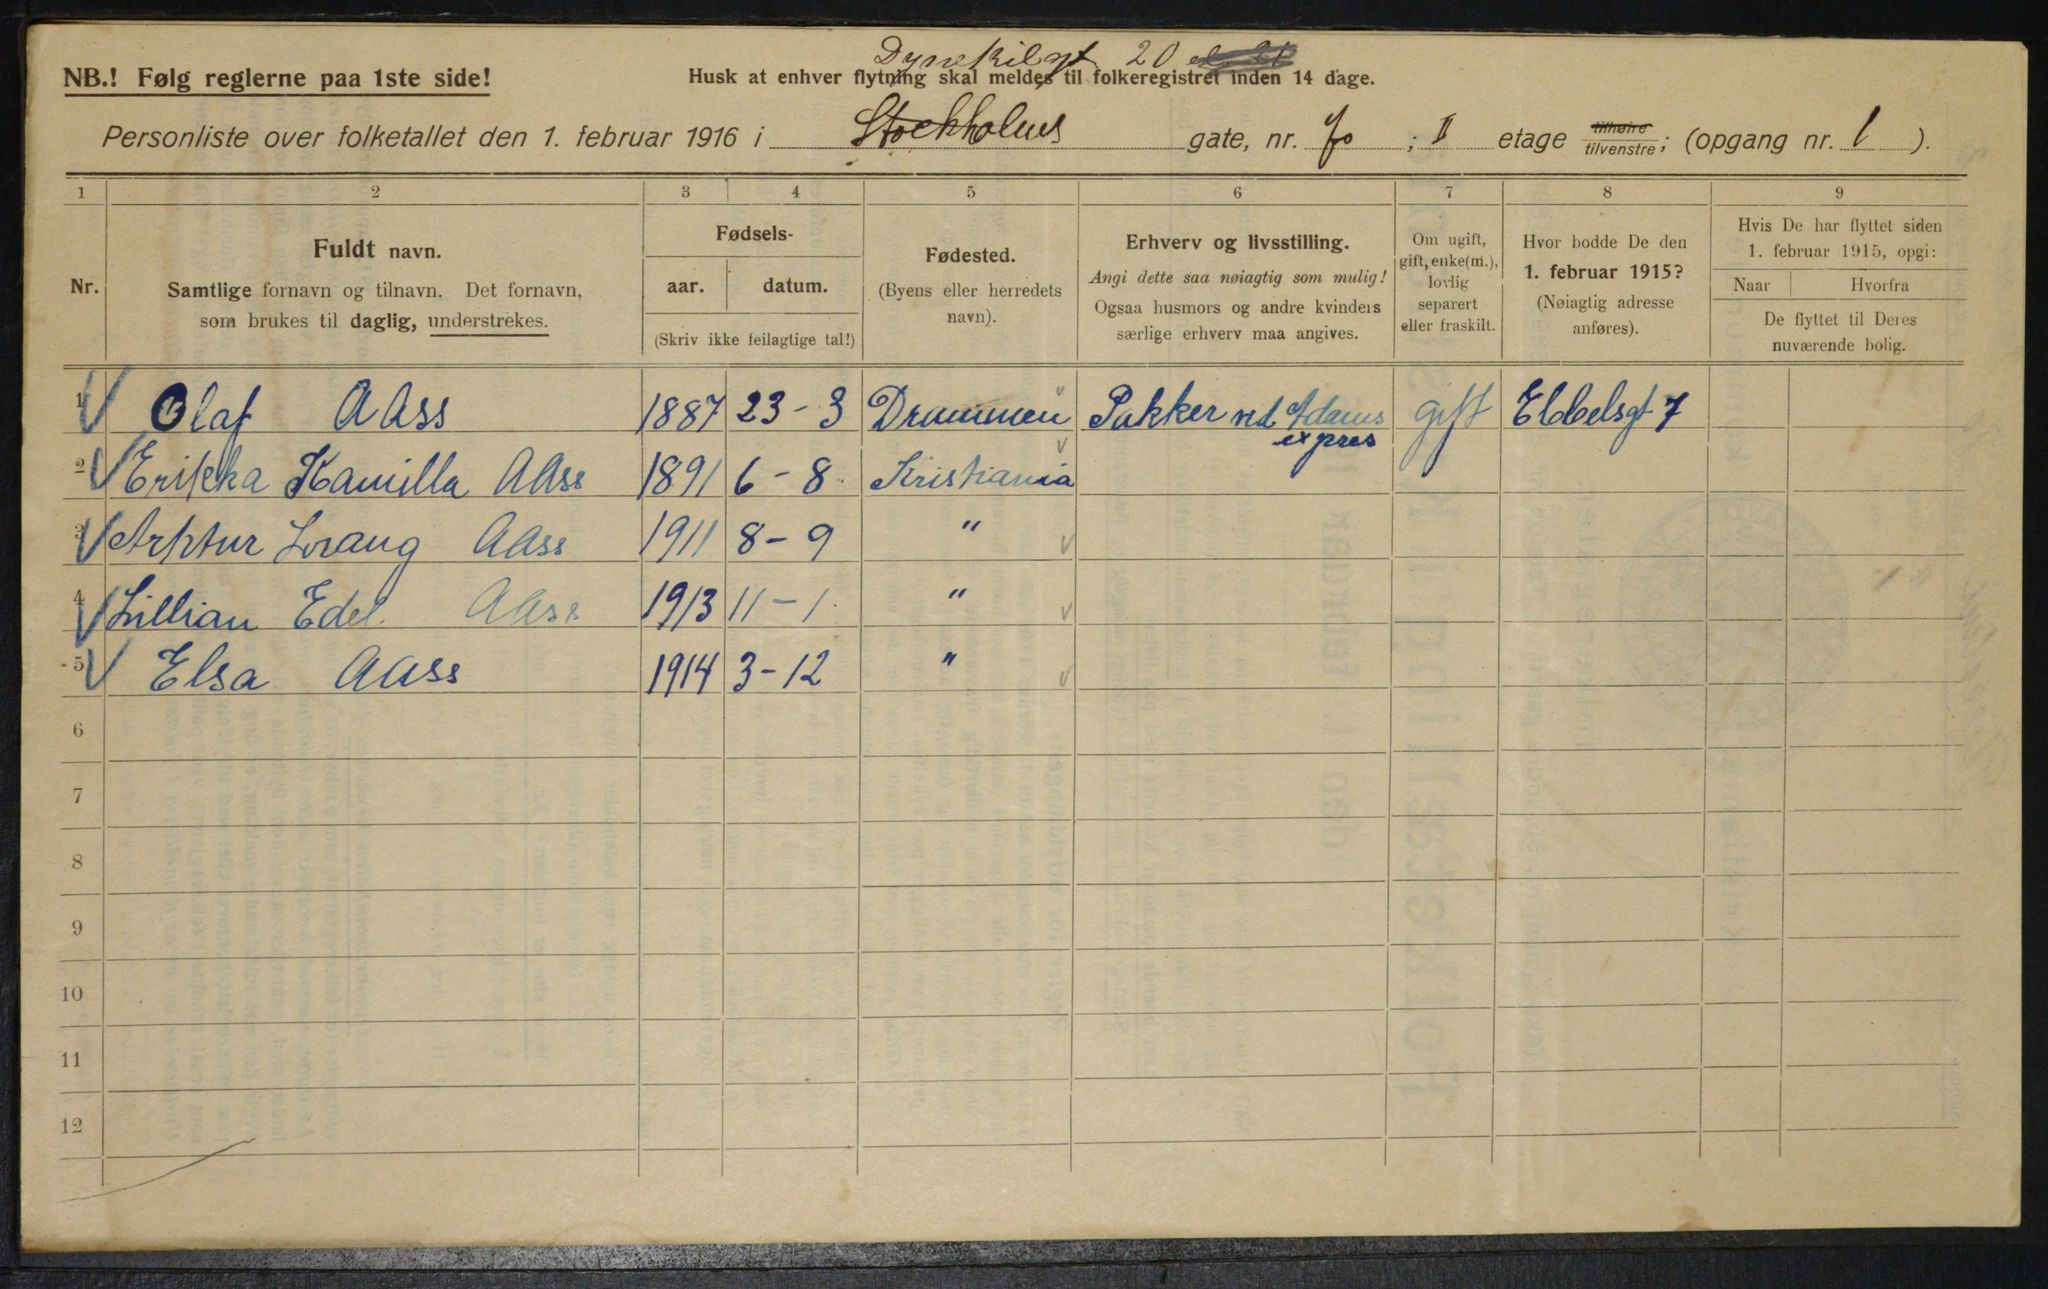 Dynekilgt 20
NB.! Følg reglerne paa 1ste side!
Husk at enhver flytning skal meldes til folkeregistret inden 14 dage.
Personliste over folketallet den 1. februar 1916 i Stockholms gate, nr. ; II etage tilhøire tilvenstre; (opgang nr. 1 ).
1 2 3 4 5 6 7 8 9
Nr.
Fuldt navn.
Samtlige fornavn og tilnavn. Det fornavn,
som brukes til daglig, understrekes.
Fødsels-
aar. datum.
(Skriv ikke feilagtige tal!)
Fødested.
(Byens eller herredets
navn).
Erhverv og livsstilling.
Angi dette saa nøiagtig som mulig!
Ogsaa husmors og andre kvinders
særlige erhverv maa angives.
Om ugift,
gift, enke(m.),
lovlig
separert
eller fraskilt.
Hvor bodde De den
1. februar 1915?
(Nøiagtig adresse
anføres).
Hvis De har flyttet siden
1. februar 1915, opgi:
Naar Hvorfra
De flyttet til Deres
nuværende bolig.
1 Olaf Aass 1887 23-3 Drammen Pakker ved Adams expres gift Ebbelsgt 7
2 Erikka Kamilla Aass 1891 6-8 Kristiania
3 Arhtur Lorang Aass 1911 8-9 "
4 Lillian Edel Aass 1913 11-1 "
5 Elsa Aass 1914 3-12 "
6
7
8
9
10
11
12